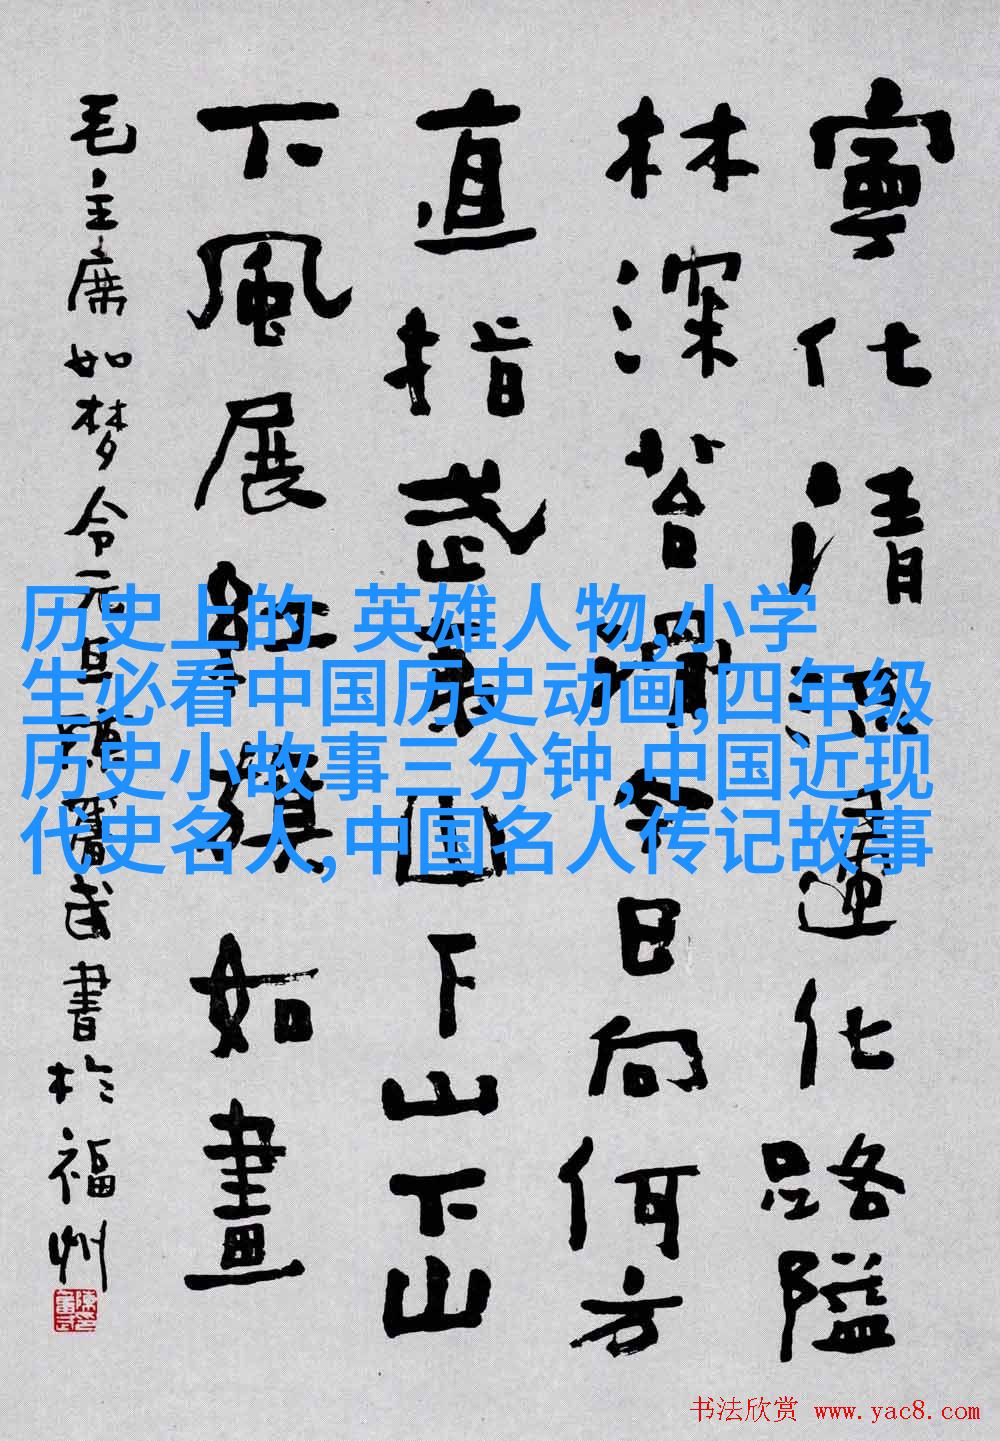 寧化清流歸化路隘
林深苔滑今日向何方
直指武夷山下山下山
下風展紅旗如畫
毛主席如梦令元旦奮武書於福州
历史上的 英雄人物,小学
生必看中国历史动画,四年级
历史小故事三分钟,中国近现
代史名人,中国名人传记故事
书法欣赏 www.yac8.com